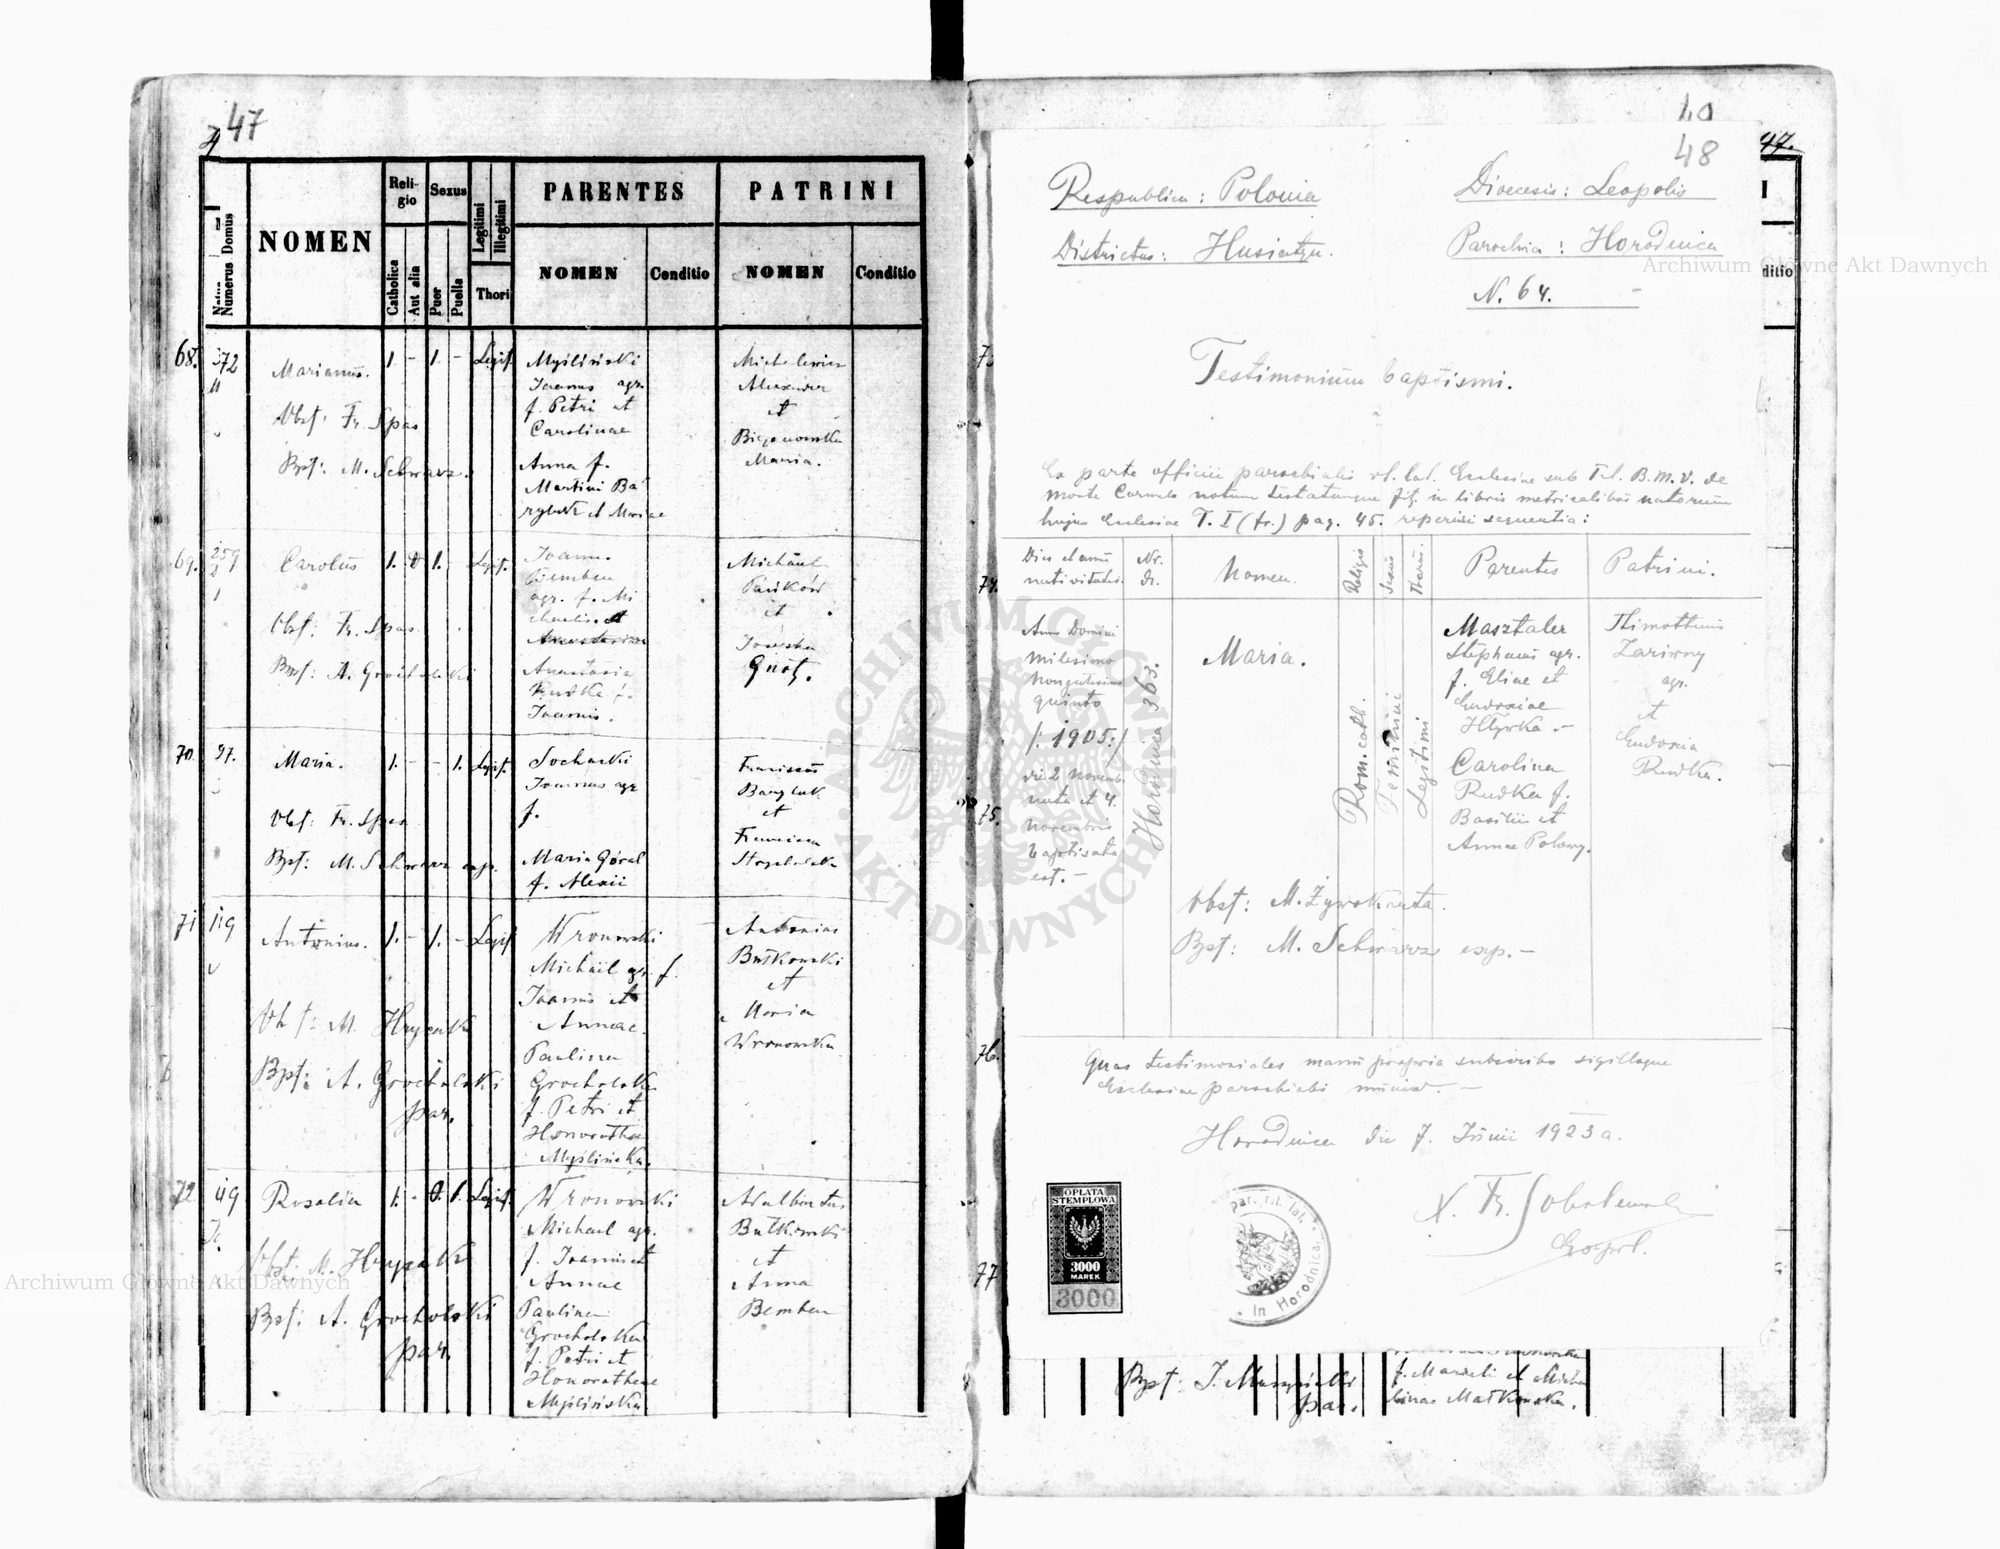 47
NOMEN
Reli-
gio
Sexus
Legitimi
Illegitimi
PARENTES
PATRINI
Numerus Domus
Catholica
Aut alia
Puer
Puella
Thori
NOMEN
Conditio
NOMEN
Conditio
68.
Marianus.
1. - 1. -
Legit.
Myśliński
Joannes agr.
f. Petri et
Carolinae
Anna f.
Martini Ba
et Mariae
Alexander
et
Maria.
Obst: Fr. Spas
Bpt: M. Schwarz.
69.
259
Carolus
1. 0 1. -
Legit.
Bemben
agr. f. Mi
chaelis et
Anastasia
Rudka f.
Joannis.
Michael
et
Josepha
Obst: Fr. Spas
Bpt: A. Grocholski
70.
97.
Maria.
1. - - 1.
Legit.
Sochacki
Joannes agr
f.
Maria Góral
f. Alexii
Franciscus
et
Francisca
Obst: Fr. Spas
Bpt: M. Schwarz exp.
71
119
Antonius.
1. - 1. -
Legit
Wronowski
Michael agr. f.
Joannis et
Annae.
Paulina
Grocholska
f. Petri et
Honorathae
Myślińska.
Antonius
Butkowski
et
Maria
Wronowska
Obst: M. Hrycak
Bpt: A. Grocholski
par.
72
119
Rosalia
1. - 0. 1.
Legit.
Wronowski
Michael agr.
f. Joannis et
Annae
Paulina
Grocholska
f. Petri et
Honorathae
Myślińska
Adalbertus
Butkowski
et
Anna
Bemben
Obst: M. Hrycak
Bpt: A. Grocholski
par.
40
48
47.
I
ditio
Respublica: Polonia
Dioecesis: Leopolis
Districtus: Husiatyn.
Parochia: Horodnica
N. 64.
Testimonium baptismi.
Ex parte officii parochialis rt. lat. Ecclesiae sub Tit. B.M.V. de
monte Carmelo notum testatumque fit, in libris metricalibus natorum
hujus Ecclesiae T. I (tr.) pag. 45. reperiri sequentia:
Dies et annus
nativitatis.
Nr.
D.
Nomen.
Religio
Sexus
Thorus.
Parentes
Patrini.
Anno Domini
Milesimo
nongentesimo
quinto
/: 1905:/
die 2 novemb.
nata et 4.
novembris
baptisata
est. -
Horodnica 363.
Maria.
Rom. cath.
Feminini
Legitimi
Masztaler
Stephanus agr.
f. Eliae et
Eudoxiae
Hlyrka. -
Carolina
Rudka f.
Basilii et
Annae Polowy.
Thimotheus
Zariwny
agr.
et
Eudoxia
Rudka.
Obst: M. Żywokarta.
Bpt: M. Schwarz exp. -
Quas testimoniales manu propria subscribo sigilloque
Ecclesiae parochialis munio. -
Horodnica die 7. Junii 1923 a.
OPŁATA
STEMPLOWA
3000
MAREK
3000
par. rit. lat.
in Horodnica
74.
75.
76.
77
Bpt:
par.
f. Marceli et Micha
linae Małkowska.
ARCHIWUM GŁÓWNE AKT DAWNYCH
Archiwum Główne Akt Dawnych
Archiwum Główne Akt Dawnych